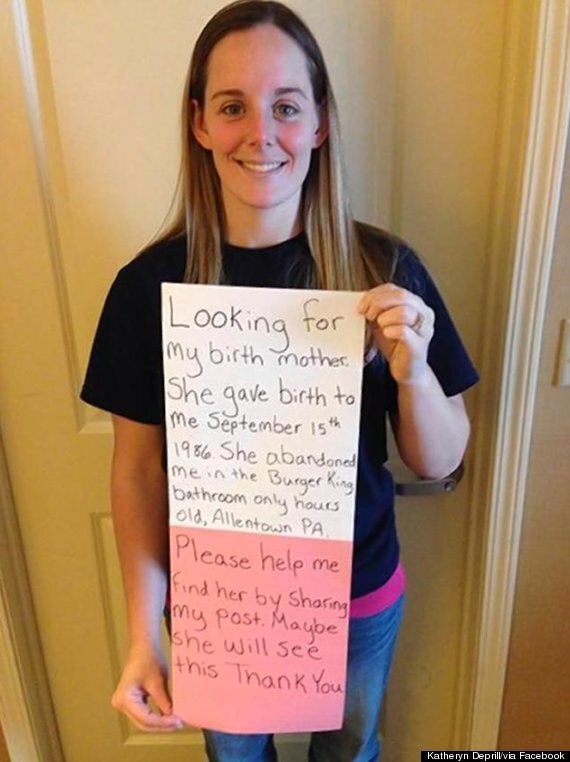 Looking for
my birth mother.
She gave birth to
me September 15th
1986. She abandoned
me in the Burger King
bathroom only hours
old, Allentown PA.
Please help me
find her by sharing
my post. Maybe
she will see
this Thank You
Katheryn Deprill/via Facebook